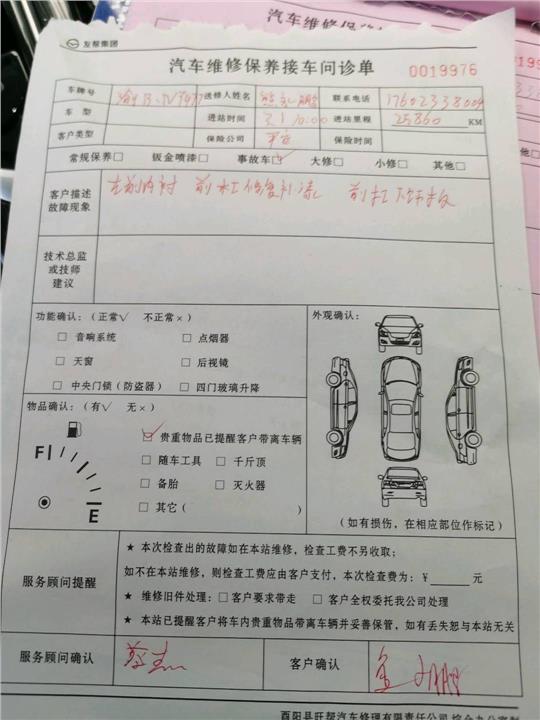 友帮集团
汽车维修保养接车问诊单
0019976
车牌号 送修人姓名 联系电话 17602338009
车 型 进站时间 3.1 10:00 进站里程 25860 KM
客户类型 保险公司 平安 保险时间
常规保养□ 钣金喷漆□ 事故车☑ 大修□ 小修□ 其他□
客户描述
故障现象
左前内衬 前杠修复补漆 前杠下饰板
技术总监
或技师
建议
功能确认：（正常√ 不正常×）
□ 音响系统 □ 点烟器
□ 天窗 □ 后视镜
□ 中央门锁（防盗器） □ 四门玻璃升降
外观确认：
物品确认：（有√ 无×）
☑ 贵重物品已提醒客户带离车辆
□ 随车工具 □ 千斤顶
□ 备胎 □ 灭火器
□ 其它（ ）
F
E
（如有损伤，在相应部位作标记）
服务顾问提醒
★ 本次检查出的故障如在本站维修，检查工费不另收取；
如不在本站维修，则检查工费应由客户支付，本次检查费为：¥____元
★ 维修旧件处理：□客户要求带走 □客户全权委托我公司处理
★ 本站已提醒客户将车内贵重物品带离车辆并妥善保管，如有丢失恕与本站无关
服务顾问确认 客户确认
酉阳县旺帮汽车修理有限责任公司
汽车维修保养